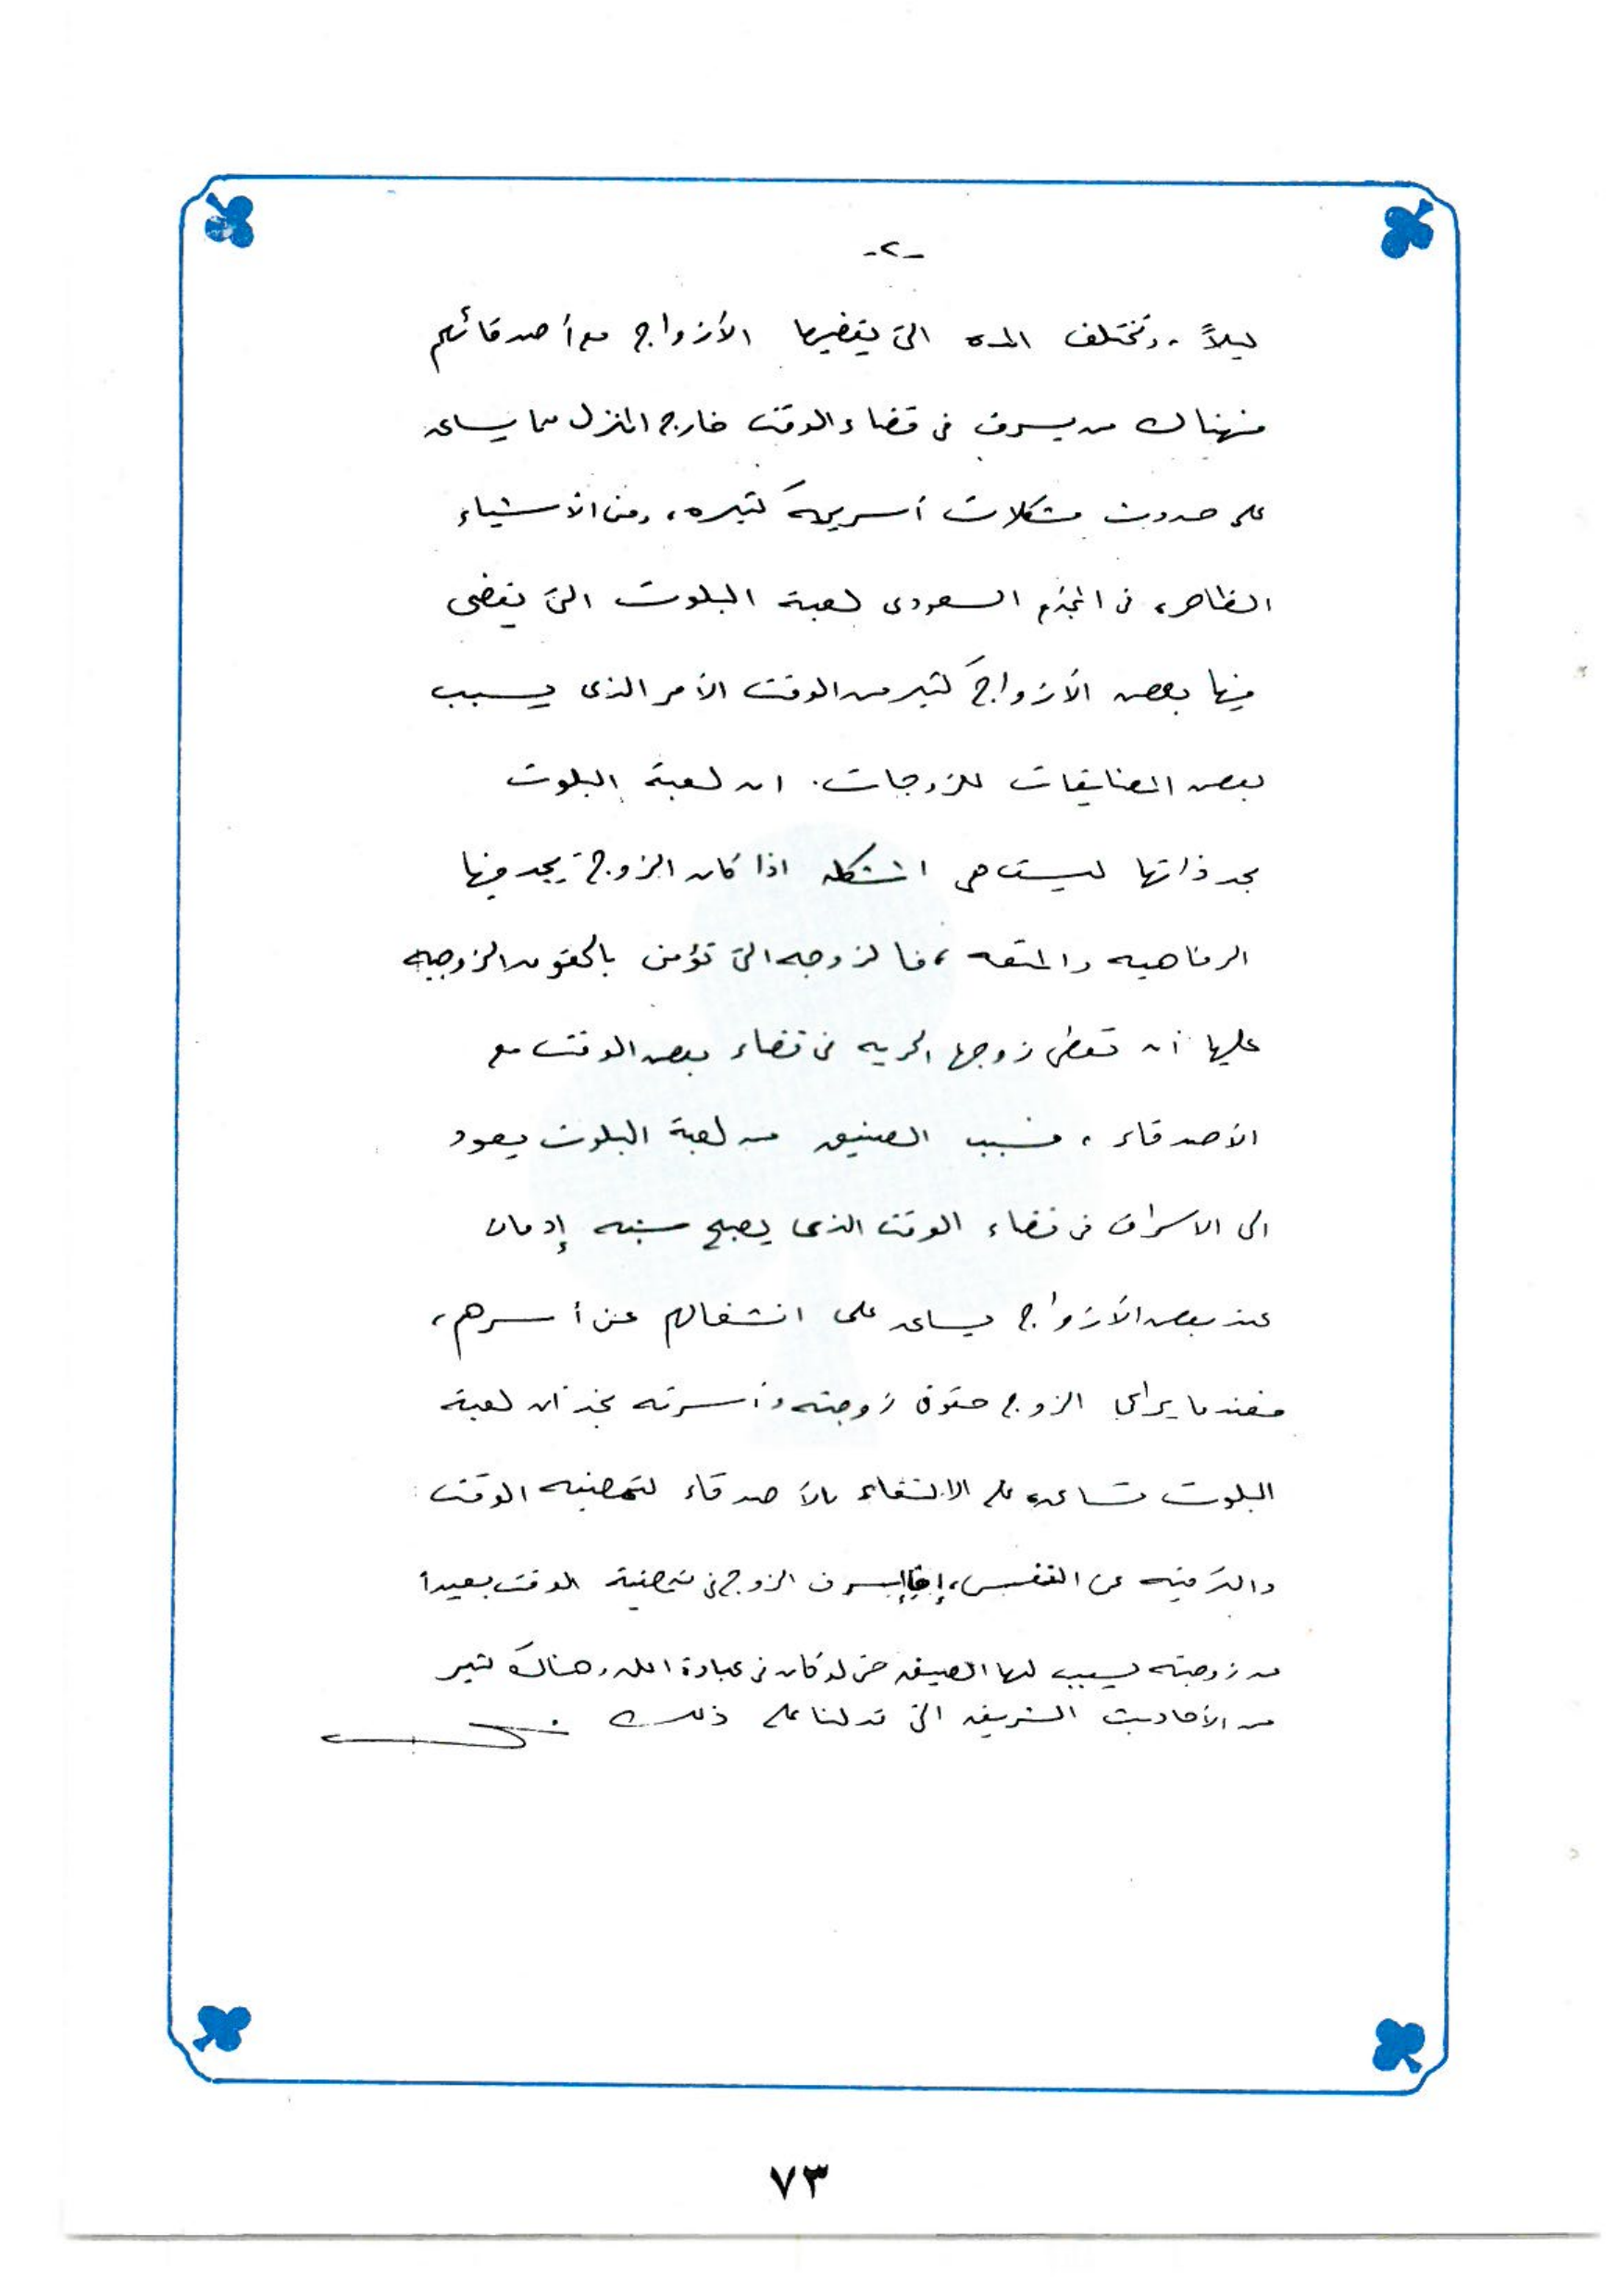 -٢-
ليلاً، وتختلف المده التي يقضيها الأزواج مع أصدقائهم
فهناك من يسرف في قضاء الوقت خارج المنزل مما يساعد
على حدوث مشكلات أسرية كثيره، ومن الأشياء
الظاهره في المجتمع السعودى لعبة البلوت التي يقضى
فيها بعض الأزواج كثير من الوقت الأمر الذى يسبب
بعض المضايقات للزوجات. ان لعبة البلوت
بحد ذاتها ليست هي المشكله اذا كان الزوج يجد فيها
الرفاهيه والمتعه، فالزوجه التي تؤمن بالحقوق الزوجيه
عليها أن تعطى زوجها الحريه في قضاء بعض الوقت مع
الأصدقاء، فسبب الضيق من لعبة البلوت يعود
الى الاسراف في قضاء الوقت الذى يصبح شبه إدمان
عند بعض الأزواج يساعد على انشغالهم عن أسرهم،
فعندما يراعي الزوج حقوق زوجته وأسرته نجد أن لعبة
البلوت تساعده على الالتقاء بالأصدقاء لتمضيه الوقت
والترفيه عن النفس، إسرف الزوج في تمضية الوقت بعيداً
من زوجته يسبب لها الضيق حتى لو كان في عبادة الله وهناك كثير
من الأحاديث الشريفه التي تدلنا على ذلك
٧٣